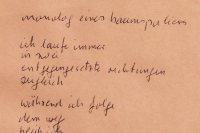 monolog eines baumspaliers
ich laufe immer
in zwei
entgegengesetzte richtungen
zugleich
während ich folge
dem weg